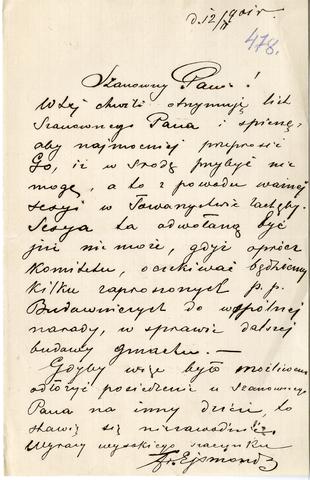 d. 12/V 901 r.
478.
Szanowny Panie!
W tej chwili otrzymuję list
Szanownego Pana i spieszę,
aby najmocniej przeprosić
Go, iż w środę przybyć nie
mogę, a to z powodu ważnej
sesyi w Towarzystwie Zachęty.
Sesya ta odwołaną być
już nie może, gdyż oprócz
Komitetu, oczekiwać będziemy
kilku zaproszonych p.p.
Budowniczych do wspólnej
narady, w sprawie dalszej
budowy gmachu. —
Gdyby więc było możliwem
odłożyć posiedzenie u Szanownego
Pana na inny dzień, to
stawię się niezawodnie
Wyrazy wysokiego szacunku
Fr. Ejsmond